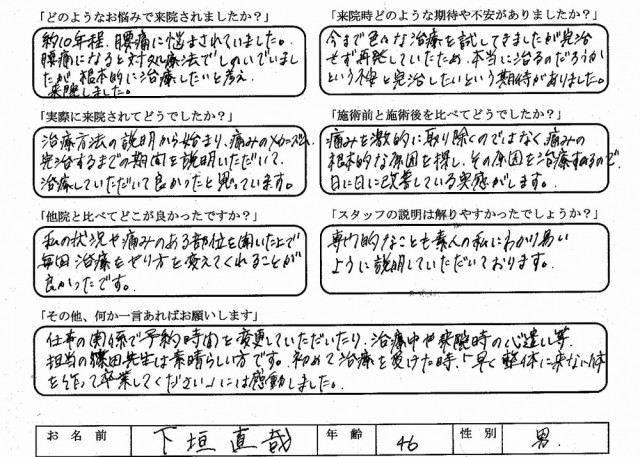 「どのようなお悩みで来院されましたか？」
約10年程、腰痛に悩まされていました。
腰痛になると対処療法でしのいでいまし
たが、根本的に治療したいと考え
来院しました。
「来院時どのような期待や不安がありましたか？」
今まで色々な治療を試してきましたが完治
せず再発していたため、本当に治るのだろうか
という不安と完治したいという期待がありました。
「実際に来院されてどうでしたか？」
治療方法の説明から始まり、痛みのメカニズム、
完治するまでの期間を説明いただいて、
治療していただいて良かったと思っています。
「施術前と施術後を比べてどうでしたか？」
痛みを激的に取り除くのではなく痛みの
根本的な原因を探し、その原因を治療するので、
日に日に改善している実感がします。
「他院と比べてどこが良かったですか？」
私の状況や痛みのある部位を聞いた上で
毎回治療をやり方を変えてくれることが
良かったです。
「スタッフの説明は解りやすかったでしょうか？」
専門的なことも素人の私にわかり易い
ように説明していただいております。
「その他、何か一言あればお願いします」
仕事の関係で予約時間を変更していただいたり、治療中や来院時の心遣い等、
担当の篠田先生は素晴らしい方です。初めて治療を受けた時、「早く整体に来ない体
を作って卒業してください」には感動しました。
お名前 下垣直哉 年齢 46 性別 男